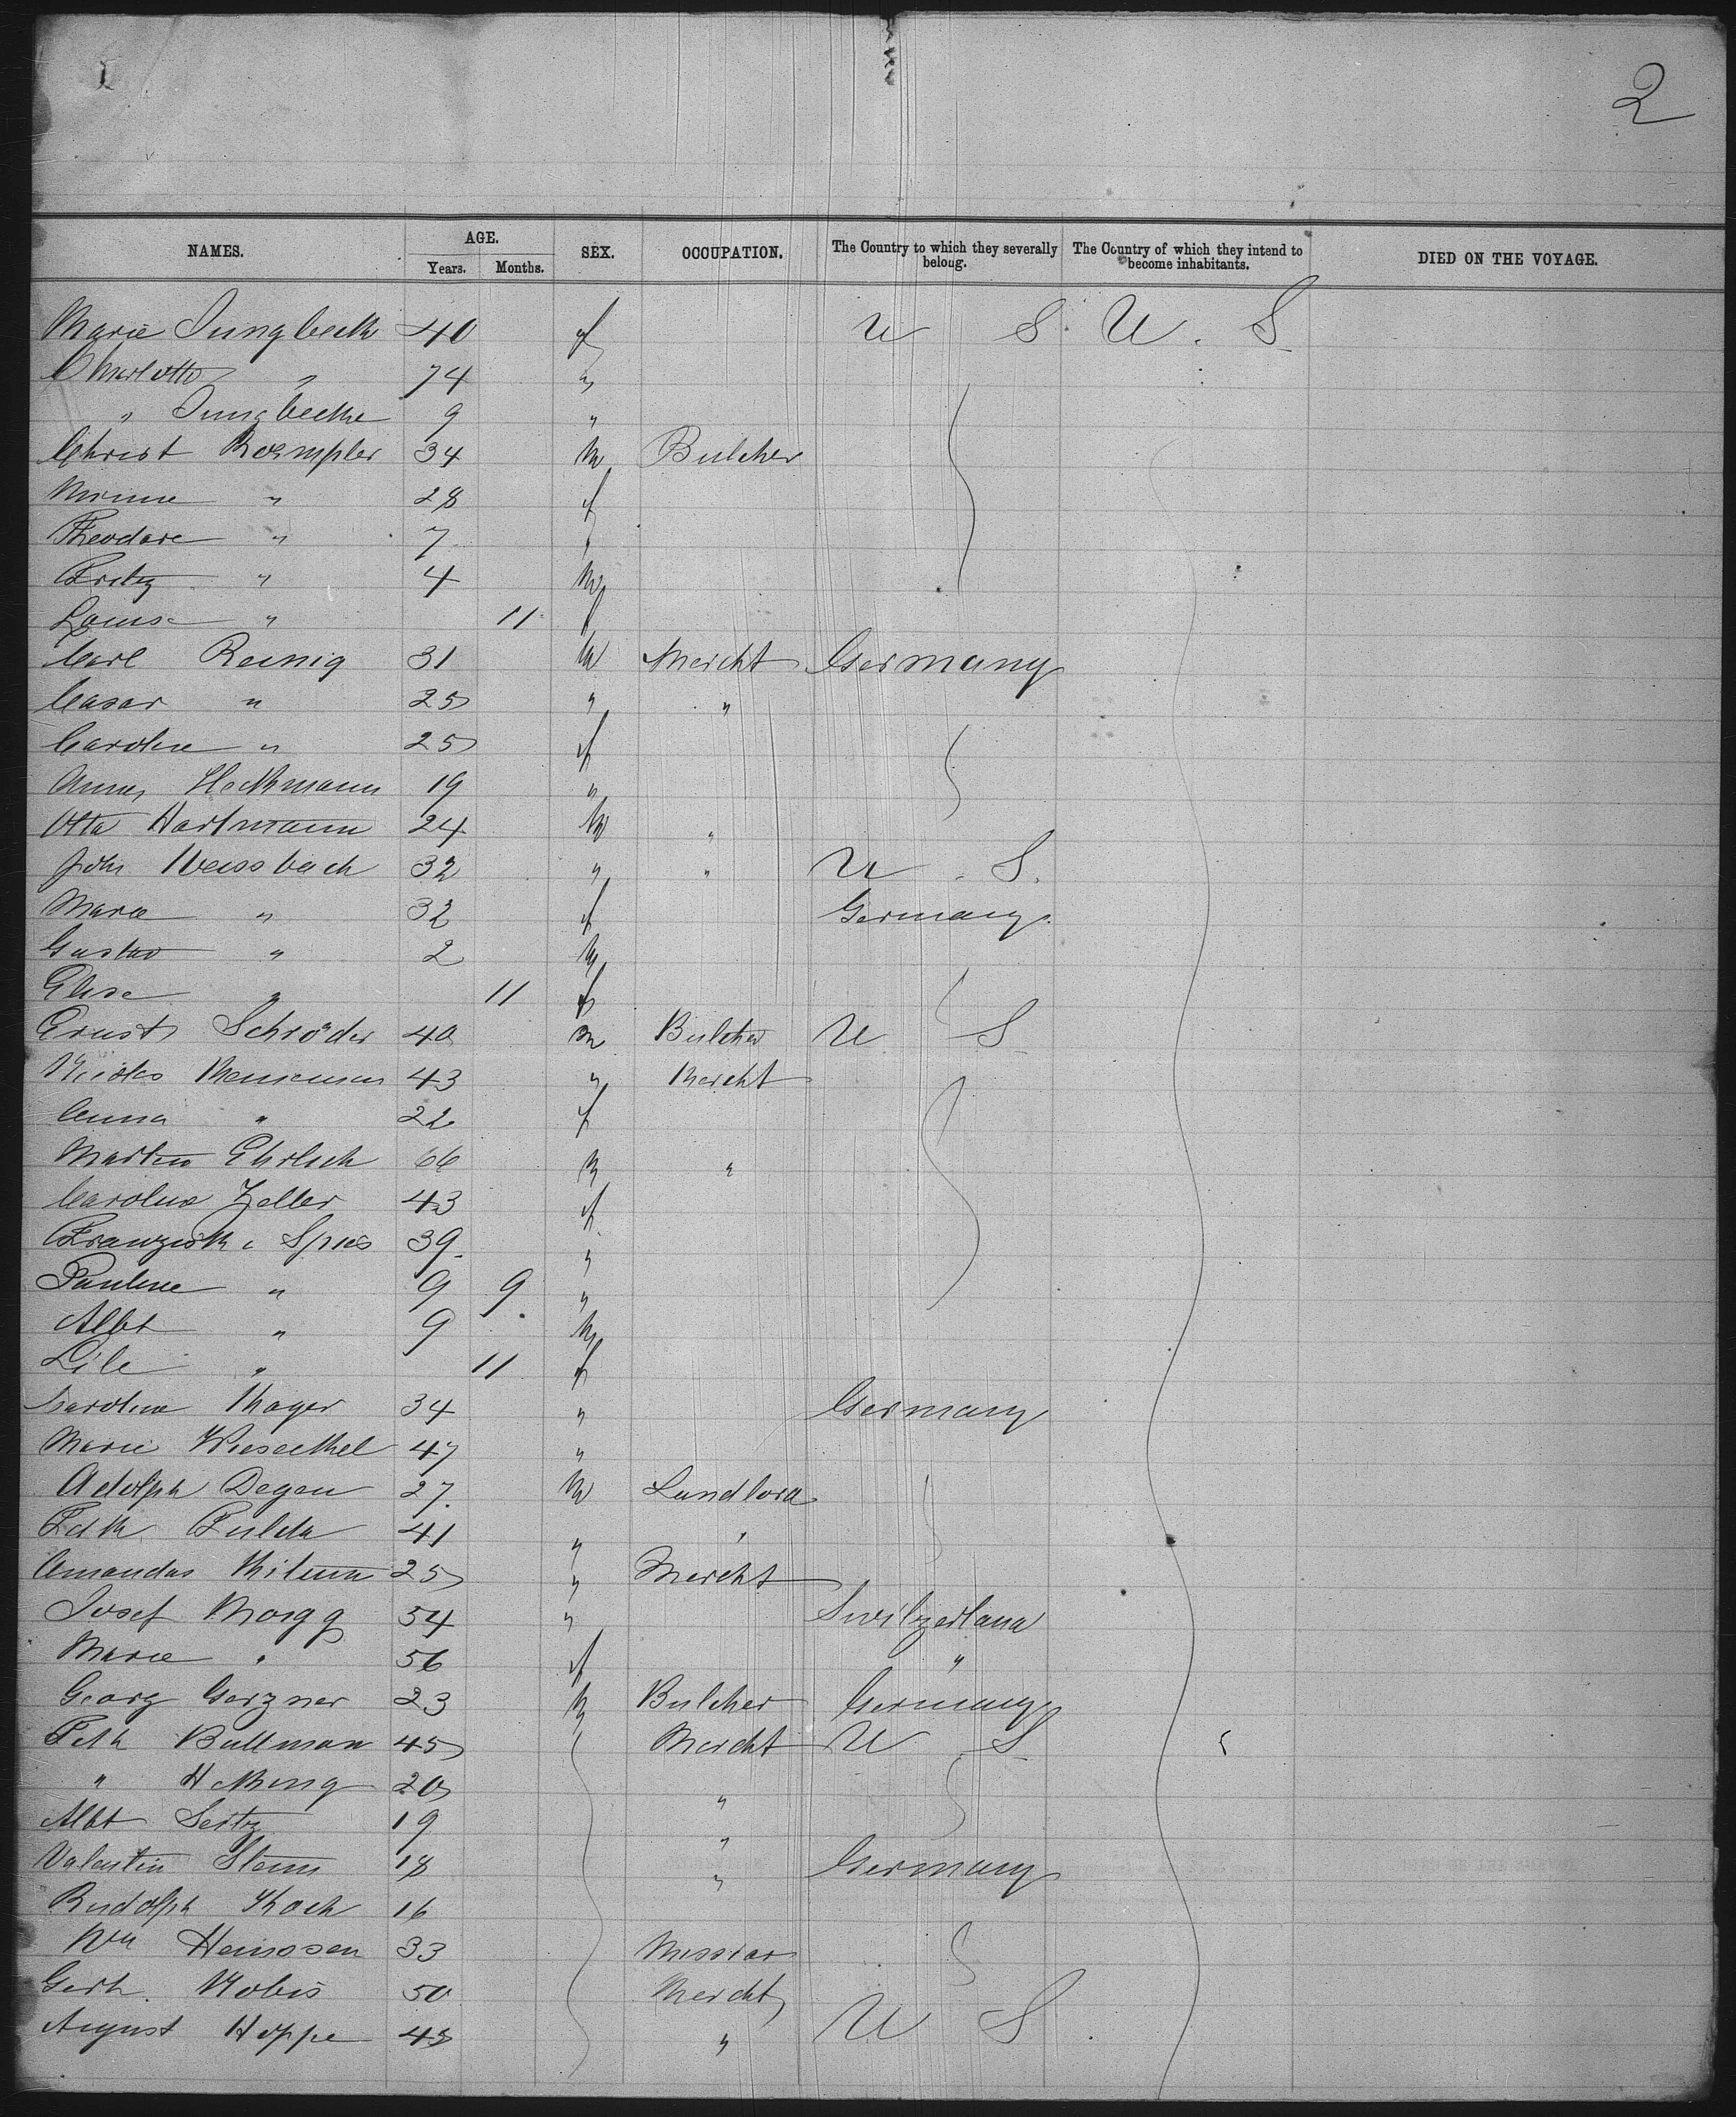 2
NAMES. AGE. SEX. OCCUPATION. The Country to which they severally belong. The Country of which they intend to become inhabitants. DIED ON THE VOYAGE.
Years. Months.
Marie Jungbeck 40 f U S. U. S
Charlotte " 74 "
" Jungbecke 9 "
Christ Roempler 34 m Butcher
Minna " 28 f
Theodore " 7 "
Fritz " 4 m
Louise " 11 f
Carl Reinig 31 m Mercht Germany
Casar " 25 " "
Caroline " 25 f
Anna Heckmann 19 "
Otto Hartmann 24 m "
John Weissbach 32 " " U. S.
Marie " 32 f Germany.
Gustav " 2 m
Elise " 11 f
Ernst Schröder 40 m Butcher U S
43 " Mercht
Anna " 22 f
Martin Ehrlich 66 m "
Caroline Zeller 43 f
Franziska Spies 39 "
Pauline " 9 9 "
Albt " 9 m
" 11 f
Caroline Mayer 34 " Germany
Marie Wiesethel 47 "
Adolph Degen 27 m Landlord
Fdk Fulda 41 " "
Amandas 25 " Mercht
Josef Mongg 54 " Switzerland
Marie " 56 f "
Georg Gerzner 23 m Butcher Germany
Fdk Bullman 45 Mercht U S
" 20 "
Albt Seitz 19 "
Valentin Stamm 18 " Germany
Rudolph Koch 16
Wm Heinssen 33
Gerh. Mobis 50 Mercht
August Hoppe 45 " U S